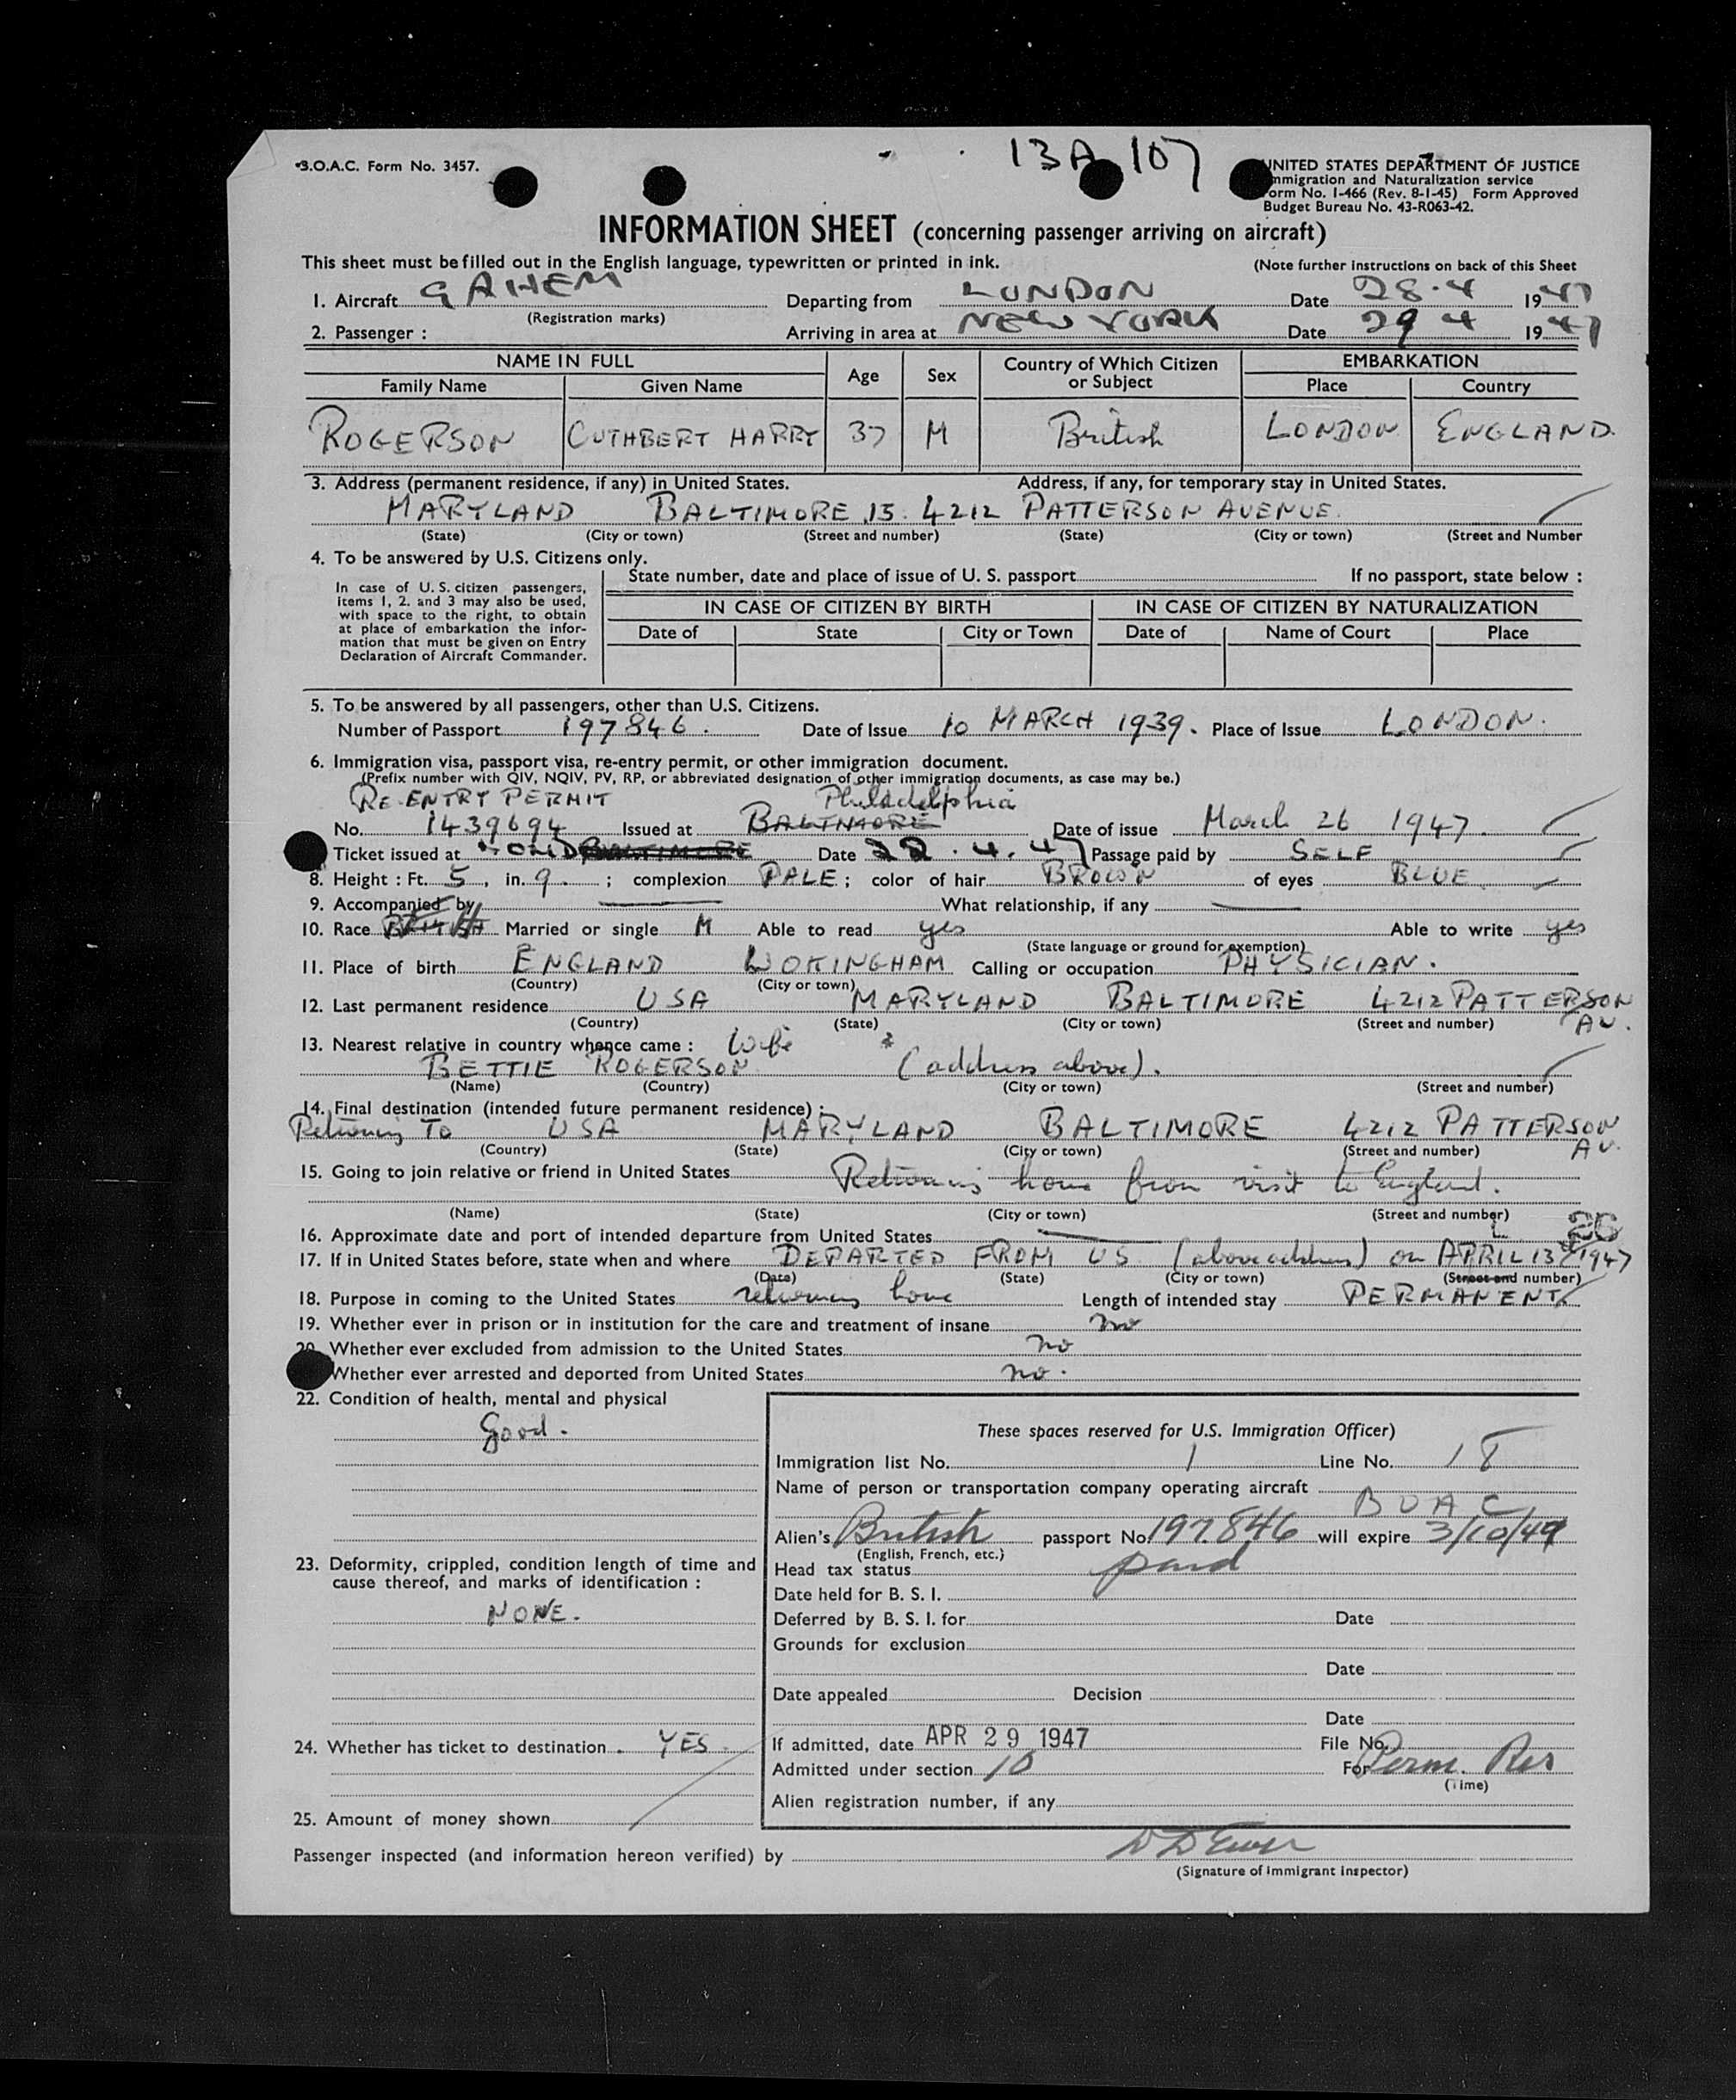 B.O.A.C. Form No. 3457.
13A 107
UNITED STATES DEPARTMENT OF JUSTICE
Immigration and Naturalization service
Form No. I-466 (Rev. 8-1-45) Form Approved
Budget Bureau No. 43-R063-42.
INFORMATION SHEET (concerning passenger arriving on aircraft)
This sheet must be filled out in the English language, typewritten or printed in ink.
(Note further instructions on back of this Sheet
1. Aircraft GAHEM Departing from LONDON Date 28.4 1947
(Registration marks)
2. Passenger : Arriving in area at NEW YORK Date 29 4 1947
NAME IN FULL Age Sex Country of Which Citizen or Subject EMBARKATION
Family Name Given Name Place Country
ROGERSON CUTHBERT HARRY 37 M British LONDON ENGLAND.
3. Address (permanent residence, if any) in United States. Address, if any, for temporary stay in United States.
MARYLAND BALTIMORE 15. 4212 PATTERSON AVENUE.
(State) (City or town) (Street and number) (State) (City or town) (Street and Number
4. To be answered by U.S. Citizens only.
In case of U.S. citizen passengers, items 1, 2. and 3 may also be used, with space to the right, to obtain at place of embarkation the information that must be given on Entry Declaration of Aircraft Commander.
State number, date and place of issue of U. S. passport If no passport, state below :
IN CASE OF CITIZEN BY BIRTH IN CASE OF CITIZEN BY NATURALIZATION
Date of State City or Town Date of Name of Court Place
5. To be answered by all passengers, other than U.S. Citizens.
Number of Passport 197846. Date of Issue 10 MARCH 1939. Place of Issue LONDON.
6. Immigration visa, passport visa, re-entry permit, or other immigration document.
(Prefix number with QIV, NQIV, PV, RP, or abbreviated designation of other immigration documents, as case may be.)
RE-ENTRY PERMIT Philadelphia
No. 1439694 Issued at BALTIMORE Date of issue March 26 1947.
Ticket issued at BALTIMORE Date 22.4.47 Passage paid by SELF
8. Height : Ft. 5, in. 9. ; complexion PALE ; color of hair BROWN of eyes BLUE
9. Accompanied by What relationship, if any
10. Race BRITISH Married or single M Able to read yes Able to write yes
(State language or ground for exemption)
11. Place of birth ENGLAND WOKINGHAM Calling or occupation PHYSICIAN.
(Country) (City or town)
12. Last permanent residence USA MARYLAND BALTIMORE 4212 PATTERSON AV.
(Country) (State) (City or town) (Street and number)
13. Nearest relative in country whence came : Wife
BETTIE ROGERSON (address above).
(Name) (Country) (City or town) (Street and number)
14. Final destination (intended future permanent residence) :
Returning To USA MARYLAND BALTIMORE 4212 PATTERSON AV.
(Country) (State) (City or town) (Street and number)
15. Going to join relative or friend in United States Returning home from visit to England.
(Name) (State) (City or town) (Street and number)
16. Approximate date and port of intended departure from United States 26
17. If in United States before, state when and where DEPARTED FROM US (above address) on APRIL 13 1947
(Date) (State) (City or town) (Street and number)
18. Purpose in coming to the United States returning home Length of intended stay PERMANENT
19. Whether ever in prison or in institution for the care and treatment of insane no
20. Whether ever excluded from admission to the United States no
Whether ever arrested and deported from United States no.
22. Condition of health, mental and physical
Good.
These spaces reserved for U.S. Immigration Officer)
Immigration list No. 1 Line No. 18
Name of person or transportation company operating aircraft BOAC
Alien's British passport No 197846 will expire 3/10/49
(English, French, etc.)
23. Deformity, crippled, condition length of time and cause thereof, and marks of identification :
NONE.
Head tax status paid
Date held for B. S. I.
Deferred by B. S. I. for Date
Grounds for exclusion
Date
Date appealed Decision
Date
24. Whether has ticket to destination . YES
If admitted, date APR 29 1947 File No.
Admitted under section 10 For Perm. Res
(Time)
Alien registration number, if any
25. Amount of money shown
Passenger inspected (and information hereon verified) by
(Signature of Immigrant Inspector)